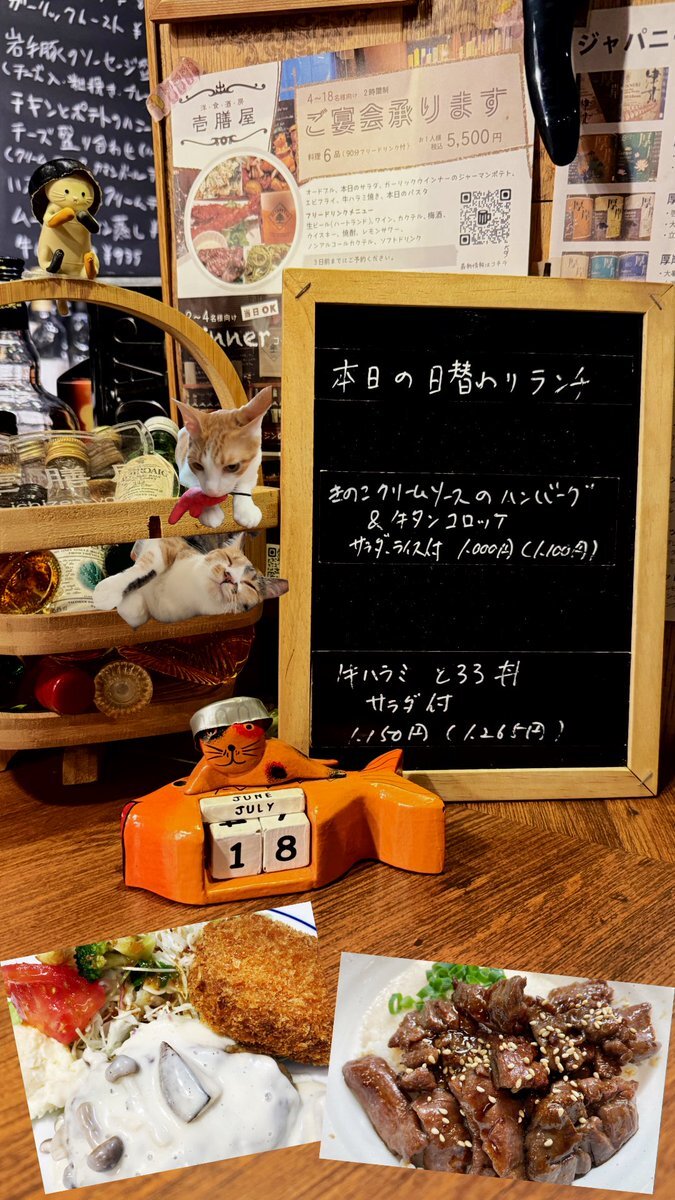 ガーリックトースト
岩手豚のソーセージ
チーズ盛り合わせ
洋・食・酒・房
壱膳屋
4〜18名様向け 2時間制
ご宴会承ります
料理6品(90分フリードリンク付) お1人様 税込 5,500円
オードブル、本日のサラダ、ガーリックウインナーのジャーマンポテト、
エビフライ、牛ハラミ焼き、本日のパスタ
フリードリンクメニュー
生ビール(ハートランド)、ワイン、カクテル、梅酒、
ウイスキー、焼酎、レモンサワー、
ノンアルコールカクテル、ソフトドリンク
3日前までにご予約ください。
最新情報はコチラ
2〜4名様向け 当日OK
inner
ジャパニ
厚岸
¥935
本日の日替わりランチ
きのこクリームソースのハンバーグ
&牛タンコロッケ
サラダ、ライス付 1.000円(1.100円)
牛ハラミ とろろ丼
サラダ付
1.150円(1.265円)
JUNE
JULY
18